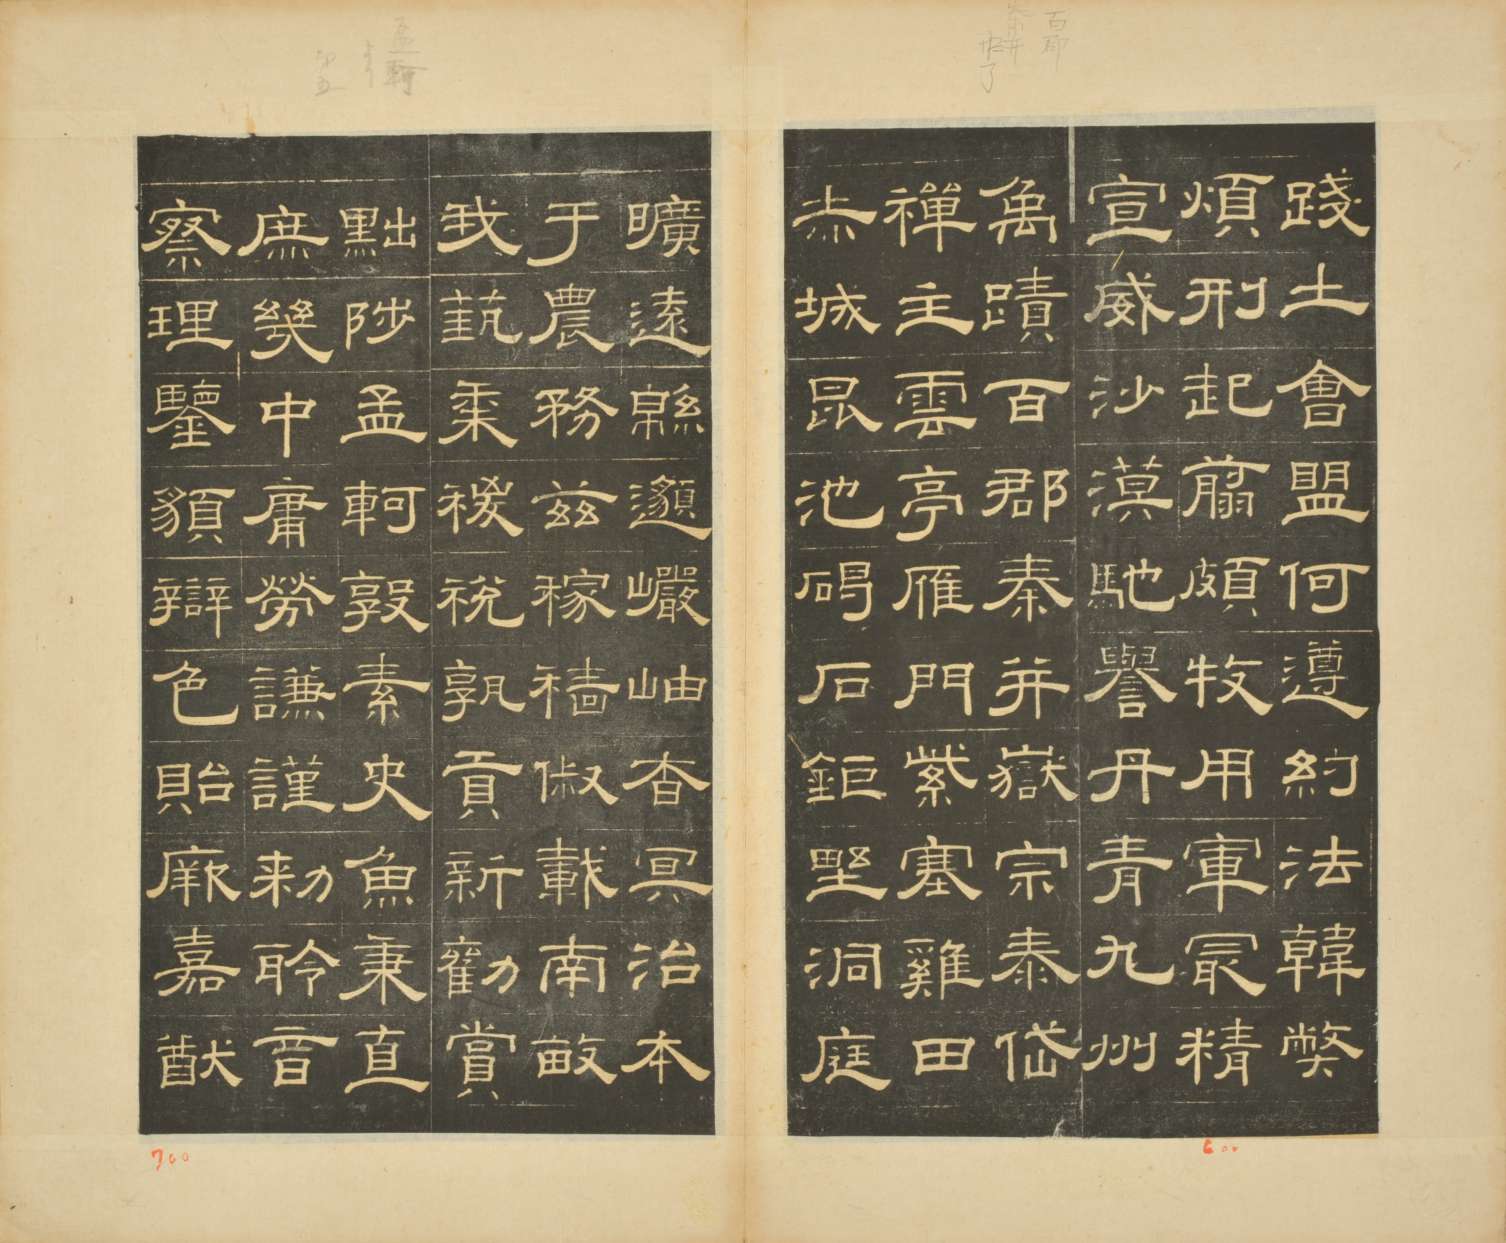 百郡
踐土會盟何遵約法韓弊
煩刑起翦頗牧用軍冣精
宣威沙漠馳譽丹青九州
禹蹟百郡秦并嶽宗泰岱
禪主雲亭雁門紫塞雞田
赤城昆池碣石鉅野洞庭
600
孟軻
曠遠緜邈巖岫杳冥治本
于農務茲稼穡俶載南畝
我藝黍稷稅孰貢新勸賞
黜陟孟軻敦素史魚秉直
庶幾中庸勞謙謹勑聆音
察理鑒貌辯色貽厥嘉猷
700